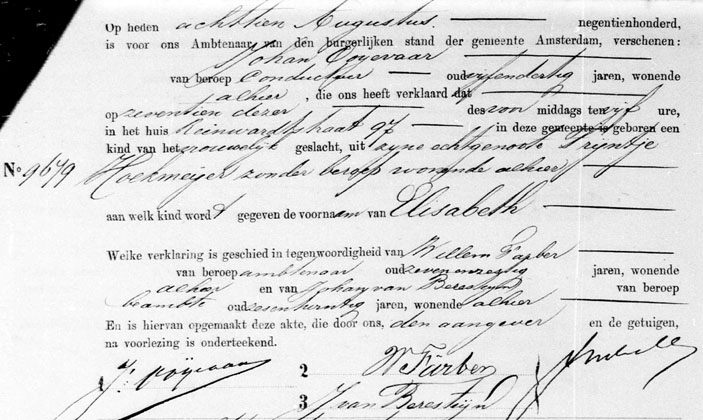 Op heden achttien Augustus negentienhonderd,
is voor ons Ambtenaar van den burgerlijken stand der gemeente Amsterdam, verschenen:
Johan Ooyevaar
van beroep Conducteur oud vijfendertig jaren, wonende
alhier, die ons heeft verklaard dat
op zeventien dezer des voor middags te vijf ure,
in het huis Reinwardtstraat 97 in deze gemeente is geboren een
kind van het vrouwelijk geslacht, uit zijne echtgenoote Trijntje
No 9679 Hoekmeijer zonder beroep wonende alhier
aan welk kind wordt gegeven de voornaam van Elisabeth
Welke verklaring is geschied in tegenwoordigheid van Willem Färber
van beroep ambtenaar oud zevenenzestig jaren, wonende
alhier en van Johan van Beresteijn van beroep
beambte oud zesentwintig jaren, wonende alhier
En is hiervan opgemaakt deze akte, die door ons, den aangever en de getuigen,
na voorlezing is onderteekend.
J: Ooyevaar 2 W Färber
3 J van Beresteijn